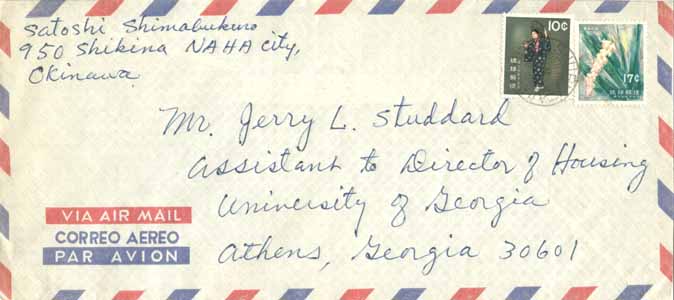 Satoshi Shimabukuro
950 Shikina NAHA City,
Okinawa
10¢
17¢
Mr. Jerry L. Studdard
Assistant to Director of Housing
University of Georgia
Athens, Georgia 30601
VIA AIR MAIL
CORREO AEREO
PAR AVION